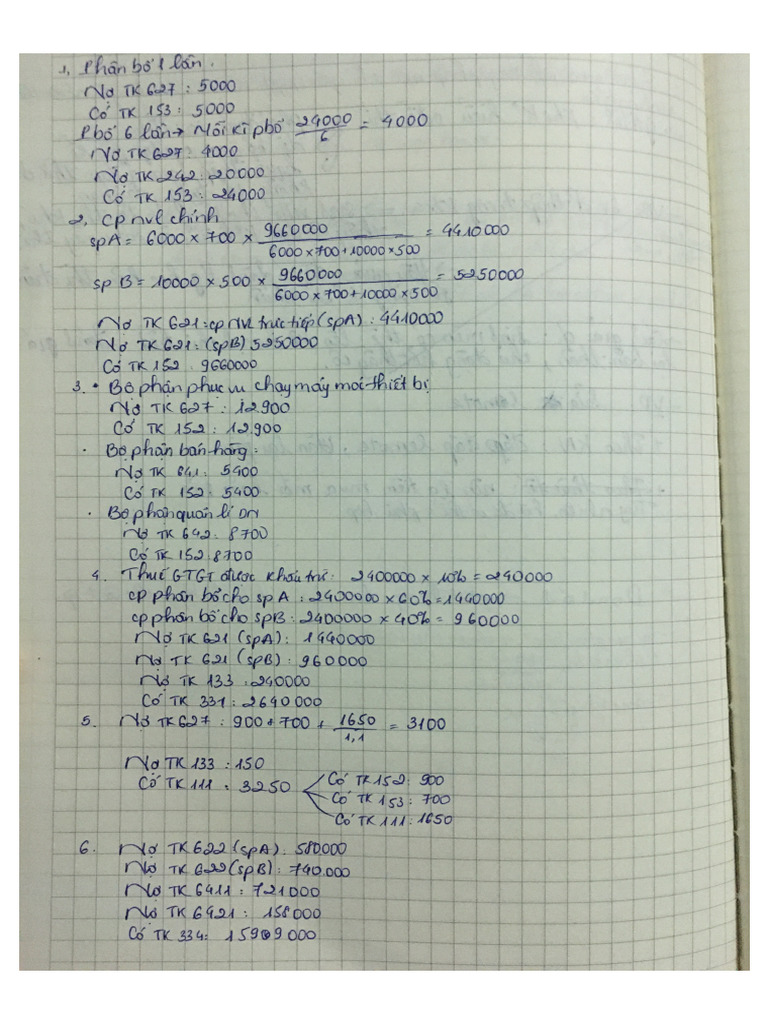 1, Phân bổ 1 lần.
Nợ TK 627 : 5000
Có TK 153 : 5000
Pbổ 6 lần → Mỗi kì pbổ 24000/6 = 4000
Nợ TK 627 : 4000
Nợ TK 242 : 20000
Có TK 153 : 24000
2, Cp nvl chính
spA = 6000 × 700 × 9660000/(6000 × 700 + 10000 × 500) = 4410000
sp B = 10000 × 500 × 9660000/(6000 × 700 + 10000 × 500) = 5250000
Nợ TK 621 : cp NVL trực tiếp (spA) : 4410000
Nợ TK 621 : (spB) 5250000
Có TK 152 : 9660000
3. • Bộ phận phục vụ chạy máy móc thiết bị
Nợ TK 627 : 12.900
Có TK 152 : 12.900
• Bộ phận bán hàng :
Nợ TK 641 : 5400
Có TK 152 : 5400
• Bộ phận quản lí DN
Nợ TK 642 : 8700
Có TK 152 : 8700
4. Thuế GTGT được khấu trừ : 2400000 × 10% = 240000
cp phân bổ cho spA : 2400000 × 60% = 1440000
cp phân bổ cho spB : 2400000 × 40% = 960000
Nợ TK 621 (spA) : 1440000
Nợ TK 621 (spB) : 960000
Nợ TK 133 : 240000
Có TK 331 : 2640000
5. Nợ TK 627 : 900 + 700 + 1650/1,1 = 3100
Nợ TK 133 : 150
Có TK 111 : 3250
Có TK 152 : 900
Có TK 153 : 700
Có TK 111 : 1650
6. Nợ TK 622 (spA) : 580000
Nợ TK 622 (spB) : 740.000
Nợ TK 6411 : 721000
Nợ TK 6421 : 158000
Có TK 334 :